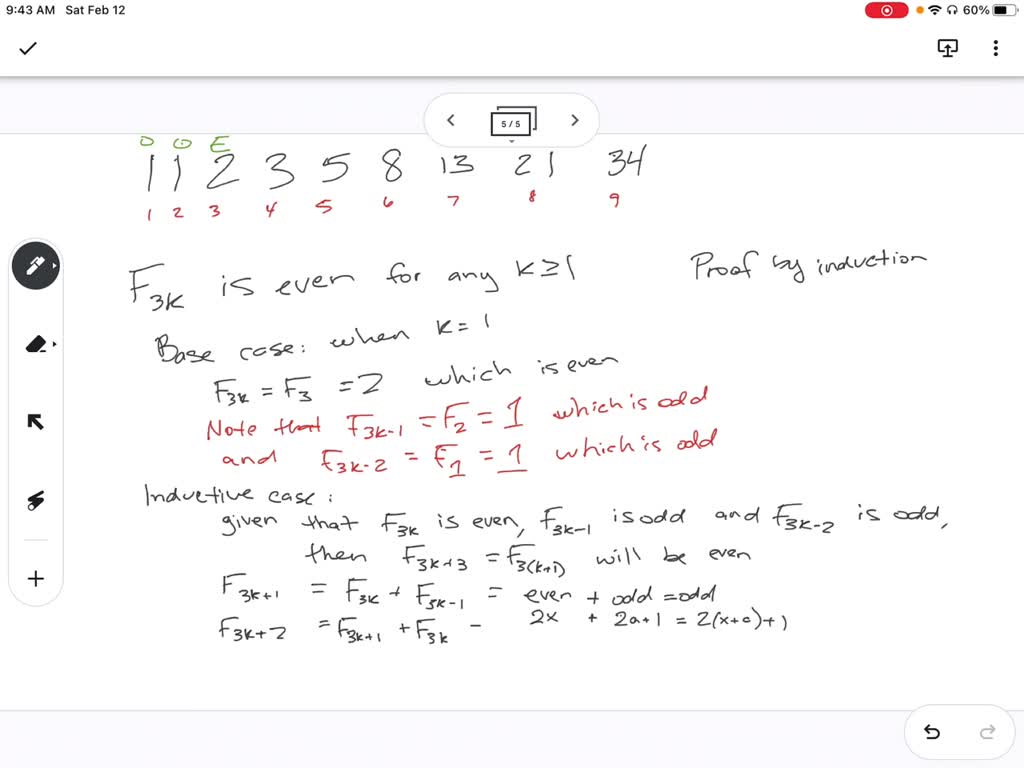 9:43 AM Sat Feb 12
60%
5 / 5
O O E
1 1 2 3 5 8 13 21 34
1 2 3 4 5 6 7 8 9
F3k is even for any k ≥ 1
Proof by induction
Base case: when k = 1
F3k = F3 = 2 which is even
Note that F3k-1 = F2 = 1 which is odd
and F3k-2 = F1 = 1 which is odd
Inductive case:
given that F3k is even, F3k-1 is odd and F3k-2 is odd,
then F3k+3 = F3(k+1) will be even
F3k+1 = F3k + F3k-1 = even + odd = odd
2x + 2a+1 = 2(x+a)+1
F3k+2 = F3k+1 + F3k =